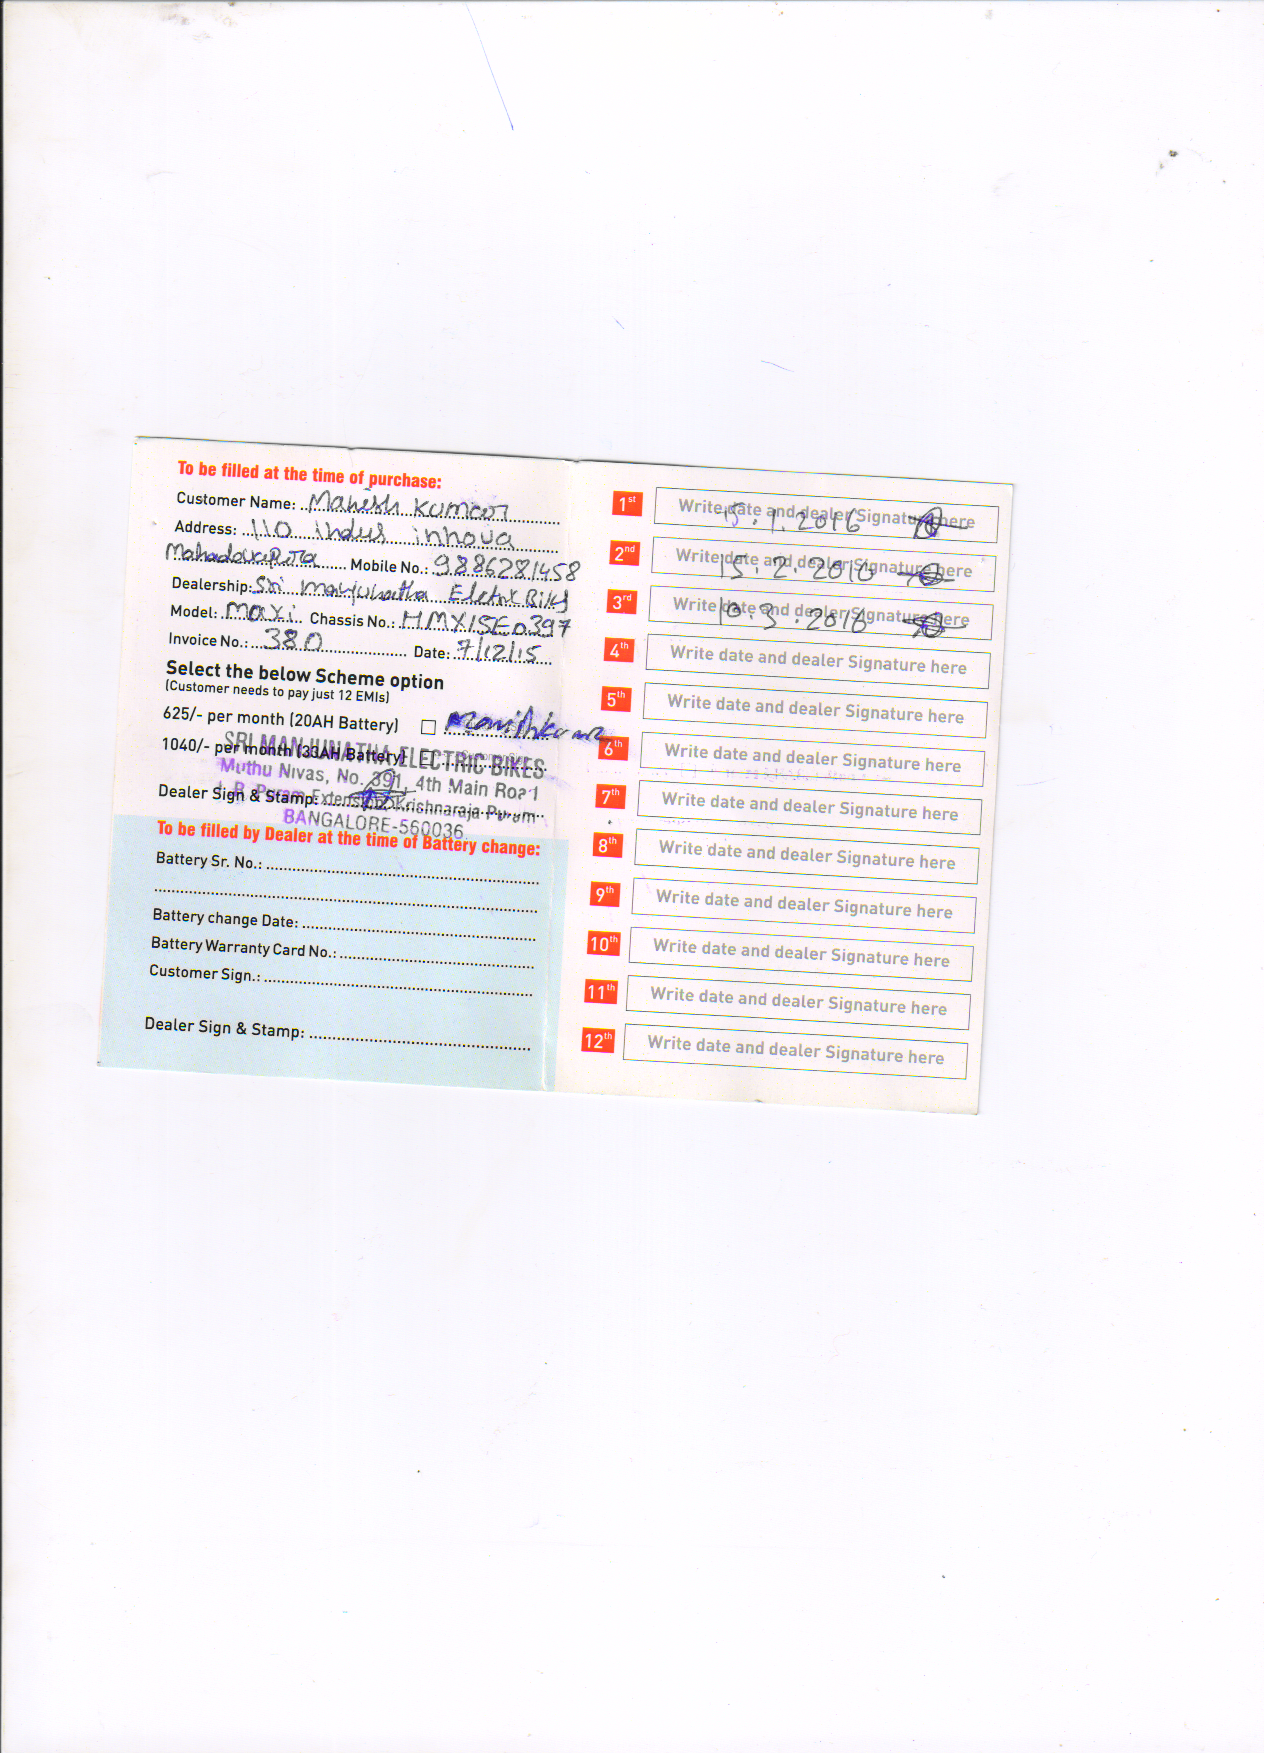 To be filled at the time of purchase:
Customer Name: Mahesh Kumar
Address: 110 indus innova
Mahadevapura Mobile No.: 9886281458
Dealership: Sri Manjunatha Eletric Bikes
Model: Maxi Chassis No.: HMX15E0397
Invoice No.: 380 Date: 7/12/15
Select the below Scheme option
(Customer needs to pay just 12 EMIs)
625/- per month (20AH Battery)
1040/- per month (33AH Battery)
SRI MANJUNATHA ELECTRIC BIKES
Muthu Nivas, No. 391, 4th Main Road
Dealer Sign & Stamp:
Extension Krishnaraja Puram
BANGALORE-560036
To be filled by Dealer at the time of Battery change:
Battery Sr. No.:
Battery change Date:
Battery Warranty Card No.:
Customer Sign.:
Dealer Sign & Stamp:
1st Write date and dealer Signature here
15.1.2016
2nd Write date and dealer Signature here
15.2.2016
3rd Write date and dealer Signature here
10.3.2016
4th Write date and dealer Signature here
5th Write date and dealer Signature here
6th Write date and dealer Signature here
7th Write date and dealer Signature here
8th Write date and dealer Signature here
9th Write date and dealer Signature here
10th Write date and dealer Signature here
11th Write date and dealer Signature here
12th Write date and dealer Signature here